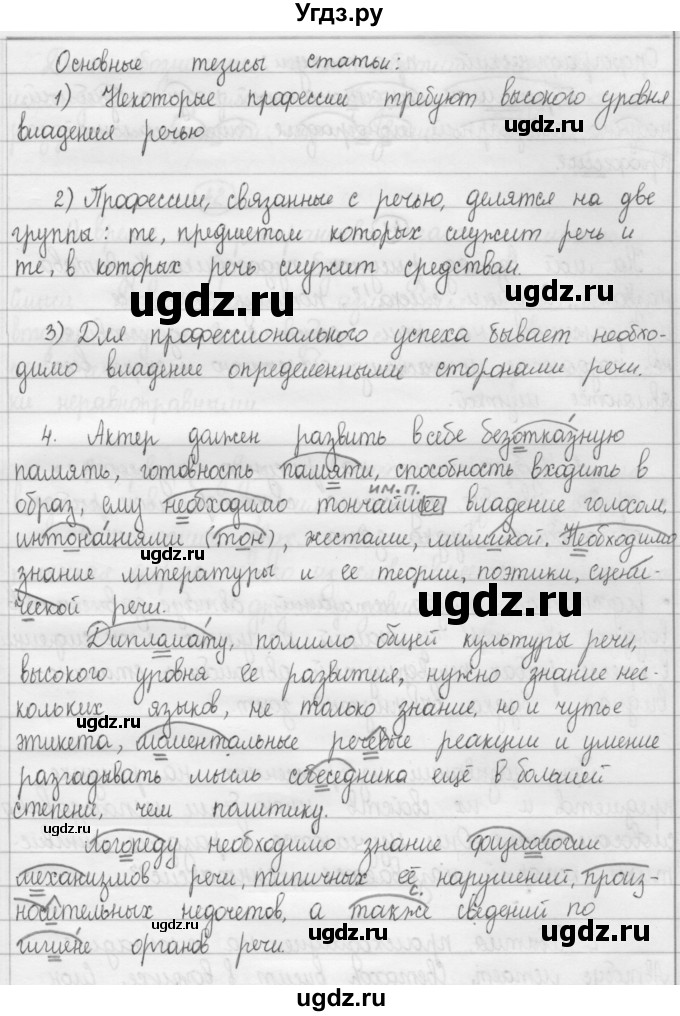 Угдз.ру
Основные тезисы статьи:
1) Некоторые профессии требуют высокого уровня
владения речью
ugdz.ru
ugdz.ru
2) Профессии, связанные с речью, делятся на две
группы: те, предметом которых служит речь и
те, в которых речь служит средством.
ugdz.ru
ugdz.ru
3) Для профессионального успеха бывает необхо-
димо владение определенными сторонами речи.
ugdz.ru
4. Актер должен развить в себе безотказную
память, готовность памяти, способность входить в
им.п.
образ, ему необходимо тончайшее владение голосом,
интонациями (тон), жестами, мимикой. Необходимо
ugdz.ru
ugdz.ru
знание литературы и ее теории, поэтики, сцени-
ческой речи.
Дипломату, помимо общей культуры речи,
высокого уровня ее развития, нужно знание нес-
кольких языков, не только знание, но и чутье
ugdz.ru
этикета, моментальные речевые реакции и умение
разгадывать мысль собеседника ещё в большей
степени, чем политику.
ugdz.ru
ugdz.ru
Логопеду необходимо знание физиологии
механизмов речи, типичных её нарушений, произ-
с.
носительных недочетов, а также сведений по
ugdz.ru
ugdz.ru
гигиене органов речи.
ugdz.ru